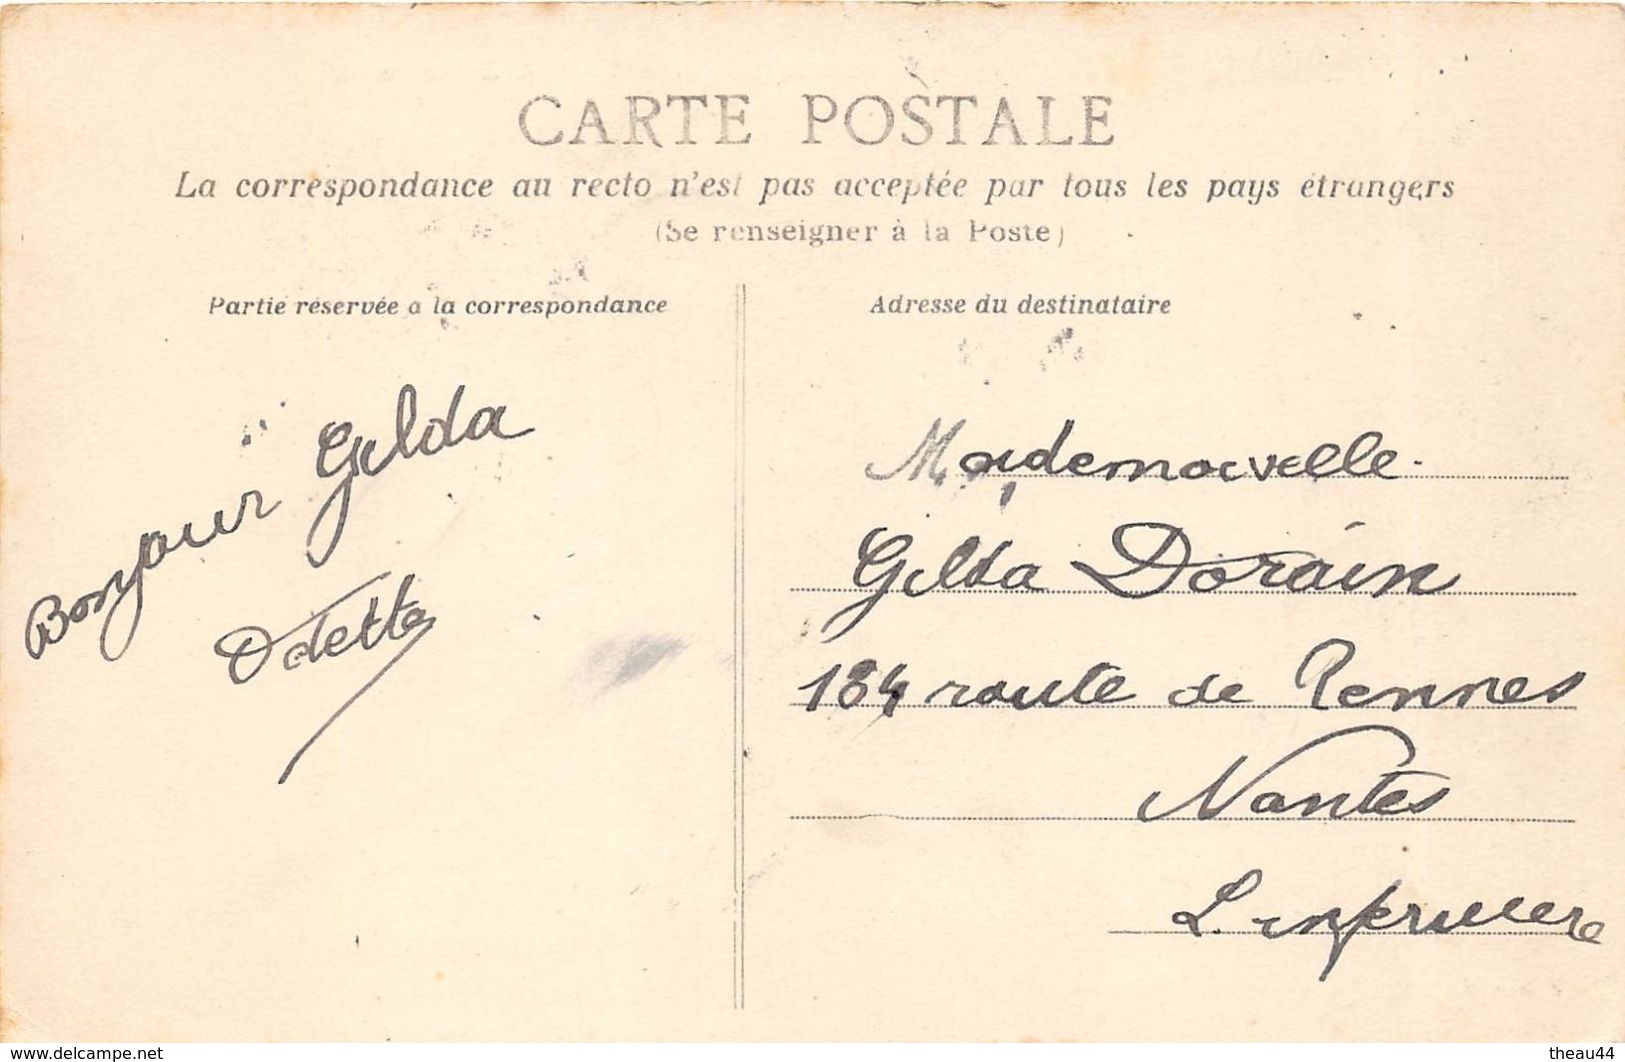 CARTE POSTALE
La correspondance au recto n'est pas acceptée par tous les pays étrangers
(Se renseigner à la Poste)
Partie réservée a la correspondance
Bonjour Gilda
Odette
Adresse du destinataire
Mademoiselle
Gilda Dorain
184 route de Rennes
Nantes
L. inferieure
www.delcampe.net
theau44